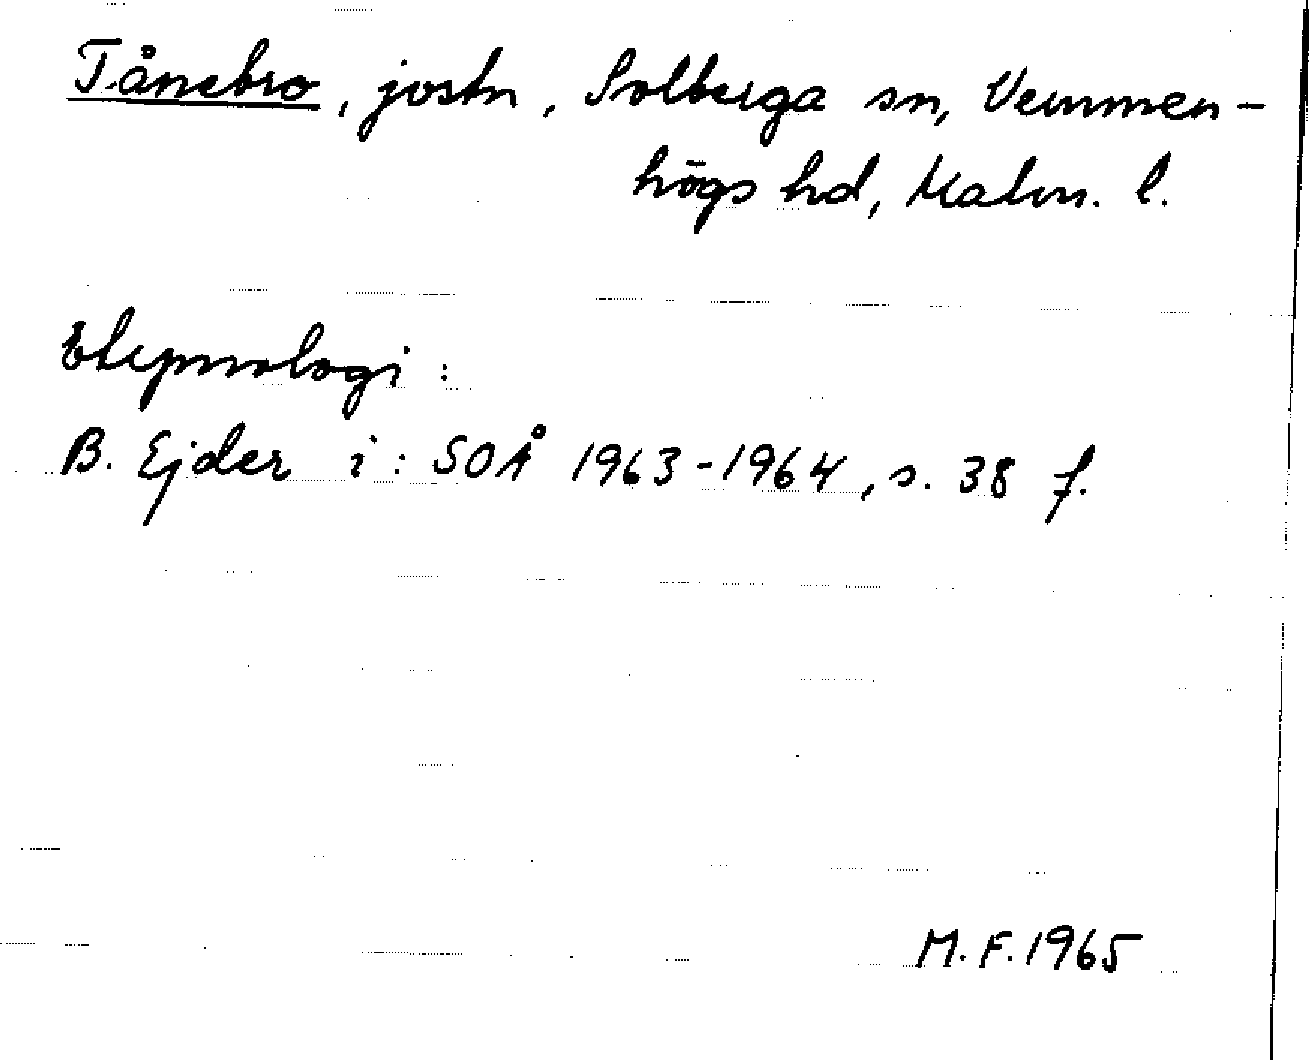 Tånebro, jostn, Solberga sn, Vemmen-
högs hd, Malm. l.
Etymologi:
B. Ejder i: SOÅ 1963-1964, s. 38 f.
M. F. 1965